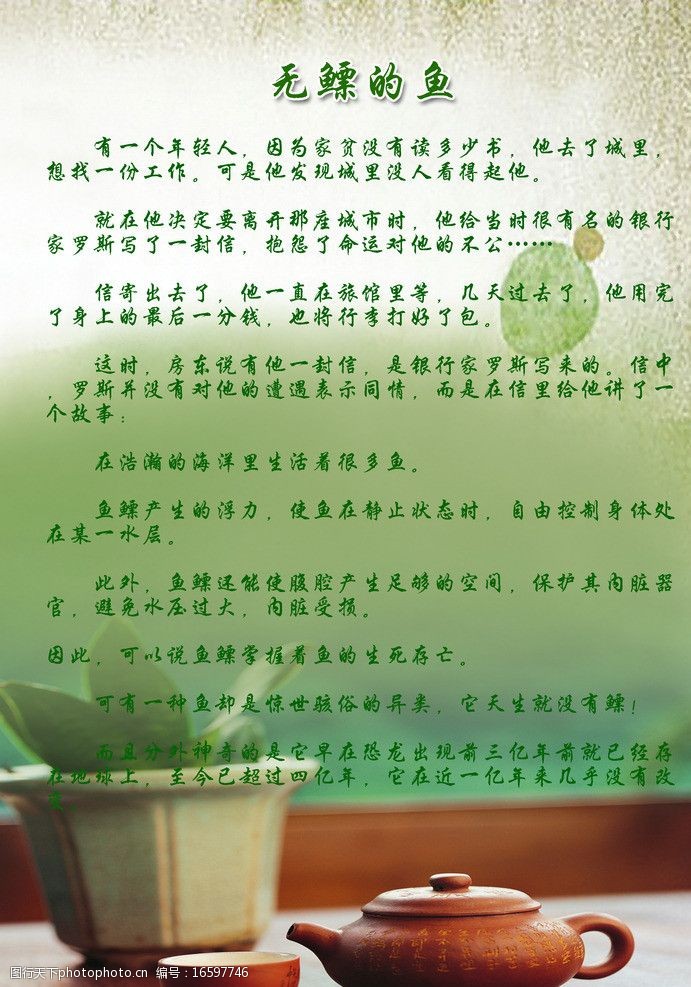 无鳔的鱼
有一个年轻人，因为家贫没有读多少书，他去了城里，
想找一份工作。可是他发现城里没人看得起他。
就在他决定要离开那座城市时，他给当时很有名的银行
家罗斯写了一封信，抱怨了命运对他的不公……
信寄出去了，他一直在旅馆里等，几天过去了，他用完
了身上的最后一分钱，也将行李打好了包。
这时，房东说有他一封信，是银行家罗斯写来的。信中
，罗斯并没有对他的遭遇表示同情，而是在信里给他讲了一
个故事：
在浩瀚的海洋里生活着很多鱼。
鱼鳔产生的浮力，使鱼在静止状态时，自由控制身体处
在某一水层。
此外，鱼鳔还能使腹腔产生足够的空间，保护其内脏器
官，避免水压过大，内脏受损。
因此，可以说鱼鳔掌握着鱼的生死存亡。
可有一种鱼却是惊世骇俗的异类，它天生就没有鳔！
而且分外神奇的是它早在恐龙出现前三亿年前就已经存
在地球上，至今已超过四亿年，它在近一亿年来几乎没有改
变
图行天下photophoto.cn 编号：16597746